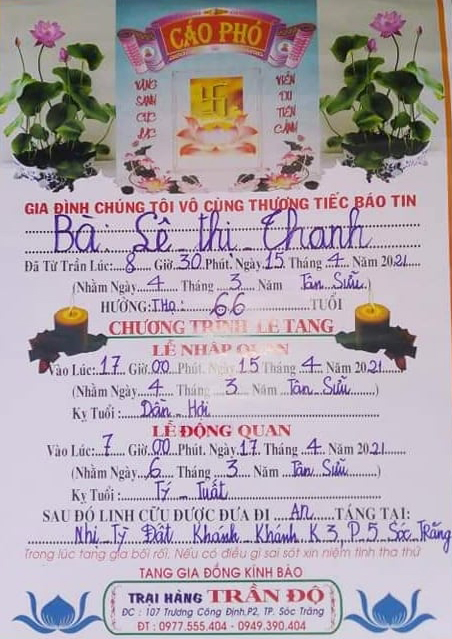 CÁO PHÓ
VÃNG SANH CỰC LẠC
VIÊN DU TIÊN CẢNH
GIA ĐÌNH CHÚNG TÔI VÔ CÙNG THƯƠNG TIẾC BÁO TIN
Bà: Lê thị Thanh
Đã Từ Trần Lúc: 8 Giờ 30 Phút, Ngày 15 Tháng 4 Năm 2021
(Nhằm Ngày 4 Tháng 3 Năm Tân Sửu)
HƯỞNG: THỌ: 66 TUỔI
CHƯƠNG TRÌNH LỄ TANG
LỄ NHẬP QUAN
Vào Lúc: 17 Giờ 00 Phút. Ngày 15 Tháng 4 Năm 2021
(Nhằm Ngày 4 Tháng 3 Năm Tân Sửu)
Kỵ Tuổi: Dần - Hợi
LỄ ĐỘNG QUAN
Vào Lúc: 7 Giờ 00 Phút. Ngày 17 Tháng 4 Năm 2021
(Nhằm Ngày 6 Tháng 3 Năm Tân Sửu)
Kỵ Tuổi: Tý - Tuất
SAU ĐÓ LINH CỮU ĐƯỢC ĐƯA ĐI An TÁNG TẠI:
Nhị Tỳ Đất Khánh Khánh K.3, P.5 Sóc Trăng
Trong lúc tang gia bối rối. Nếu có điều gì sai sót xin niệm tình tha thứ
TANG GIA ĐỒNG KÍNH BÁO
TRẠI HÀNG TRẦN ĐỘ
ĐC : 107 Trương Công Định,P2, TP. Sóc Trăng
ĐT : 0977.555.404 - 0949.390.404